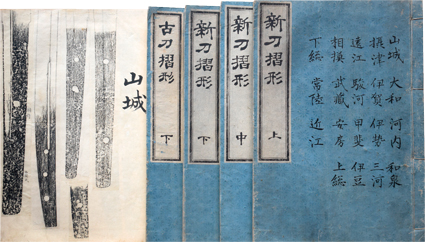 山城 大和 河内 和泉
摂津 伊賀 伊勢 三河
遠江 駿河 甲斐 伊豆
相摸 武藏 安房 上総
下総 常陸 近江
新刀摺形 上
新刀摺形 中
新刀摺形 下
古刀摺形 下
山城